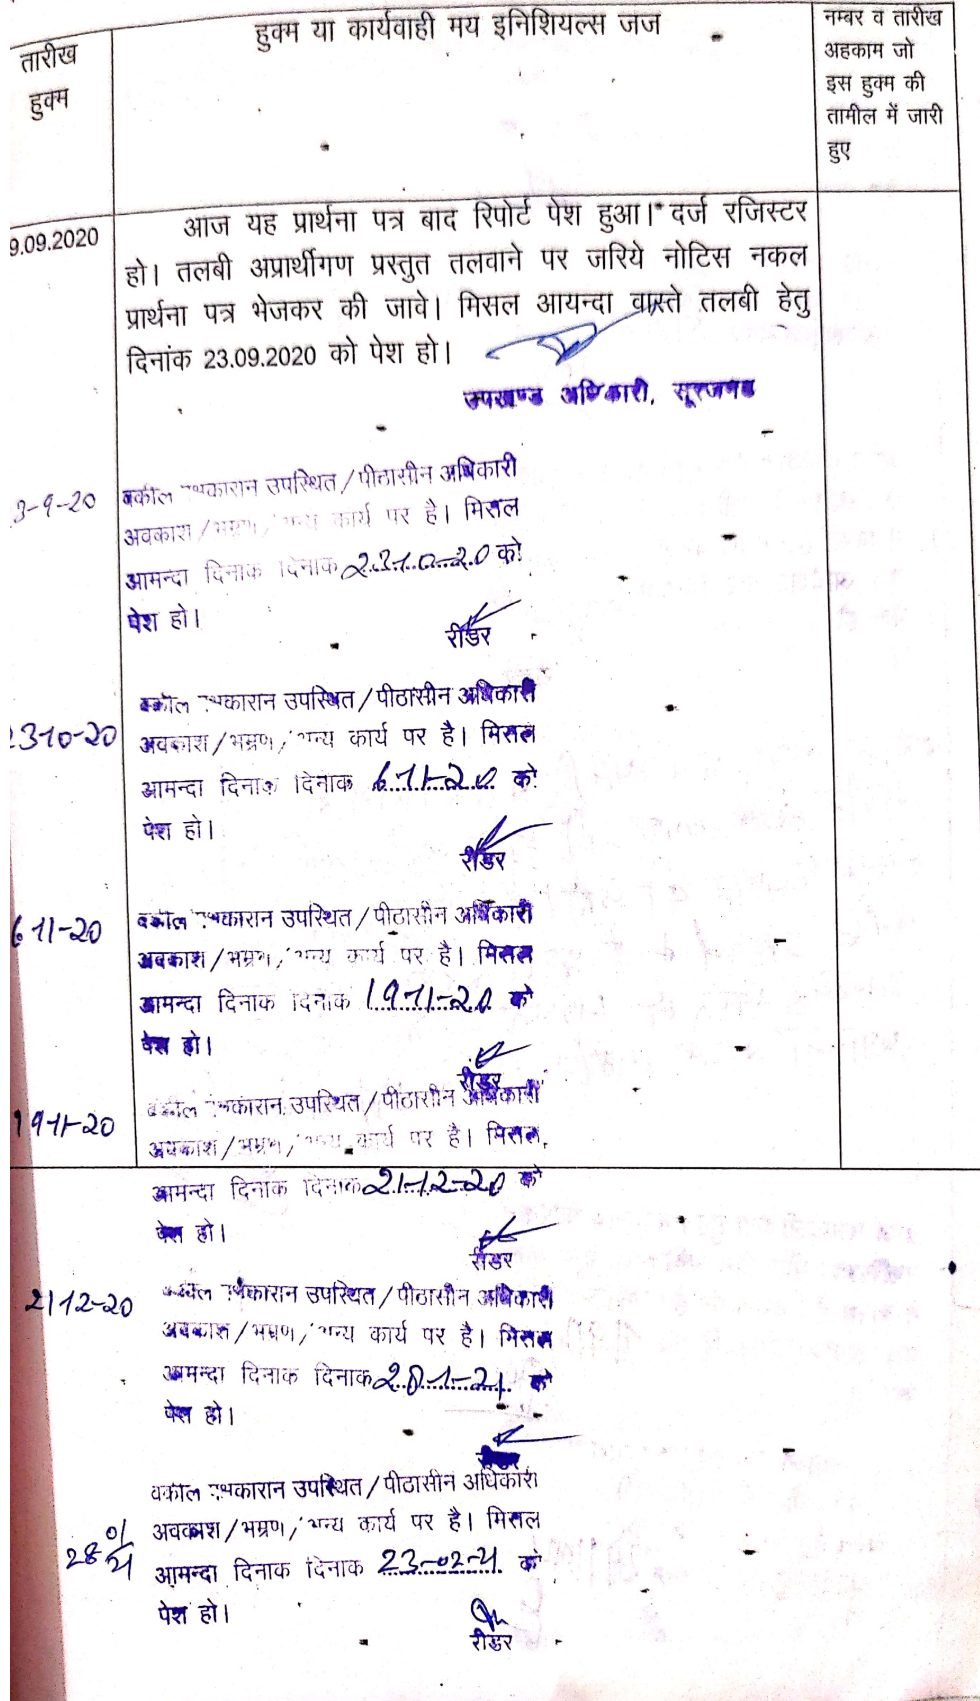 तारीख
हुक्म
हुक्म या कार्यवाही मय इनिशियल्स जज
नम्बर व तारीख
अहकाम जो
इस हुक्म की
तामील में जारी
हुए
9.09.2020
आज यह प्रार्थना पत्र बाद रिपोर्ट पेश हुआ। दर्ज रजिस्टर
हो। तलबी अप्रार्थीगण प्रस्तुत तलवाने पर जरिये नोटिस नकल
प्रार्थना पत्र भेजकर की जावे। मिसल आयन्दा वास्ते तलबी हेतु
दिनांक 23.09.2020 को पेश हो।
उपखण्ड अधिकारी, सूरजगढ
3-9-20
वकील उपस्थित/पीठासीन अधिकारी
अवकाश/भम्रण/ कार्य पर है। मिसल
आमन्दा दिनाक दिनाक 23-10-20 को
पेश हो।
रीडर
23-10-20
वकील उपस्थित/पीठासीन अधिकारी
अवकाश/भम्रण/अन्य कार्य पर है। मिसल
आमन्दा दिनाक दिनाक 6-11-20 को
पेश हो।
रीडर
6-11-20
वकील उपस्थित/पीठासीन अधिकारी
अवकाश/भम्रण/अन्य कार्य पर है। मिसल
आमन्दा दिनाक दिनाक 19-11-20 को
पेश हो।
रीडर
19-11-20
वकील उपस्थित/पीठासीन अधिकारी
अवकाश/भम्रण/ कार्य पर है। मिसल
आमन्दा दिनाक दिनाक 21-12-20 को
पेश हो।
रीडर
21-12-20
वकील उपस्थित/पीठासीन अधिकारी
अवकाश/भम्रण/अन्य कार्य पर है। मिसल
आमन्दा दिनाक दिनाक 28-1-21 को
पेश हो।
रीडर
28/01/21
वकील उपस्थित/पीठासीन अधिकारी
अवकाश/भम्रण/अन्य कार्य पर है। मिसल
आमन्दा दिनाक दिनाक 23-02-21 को
पेश हो।
रीडर